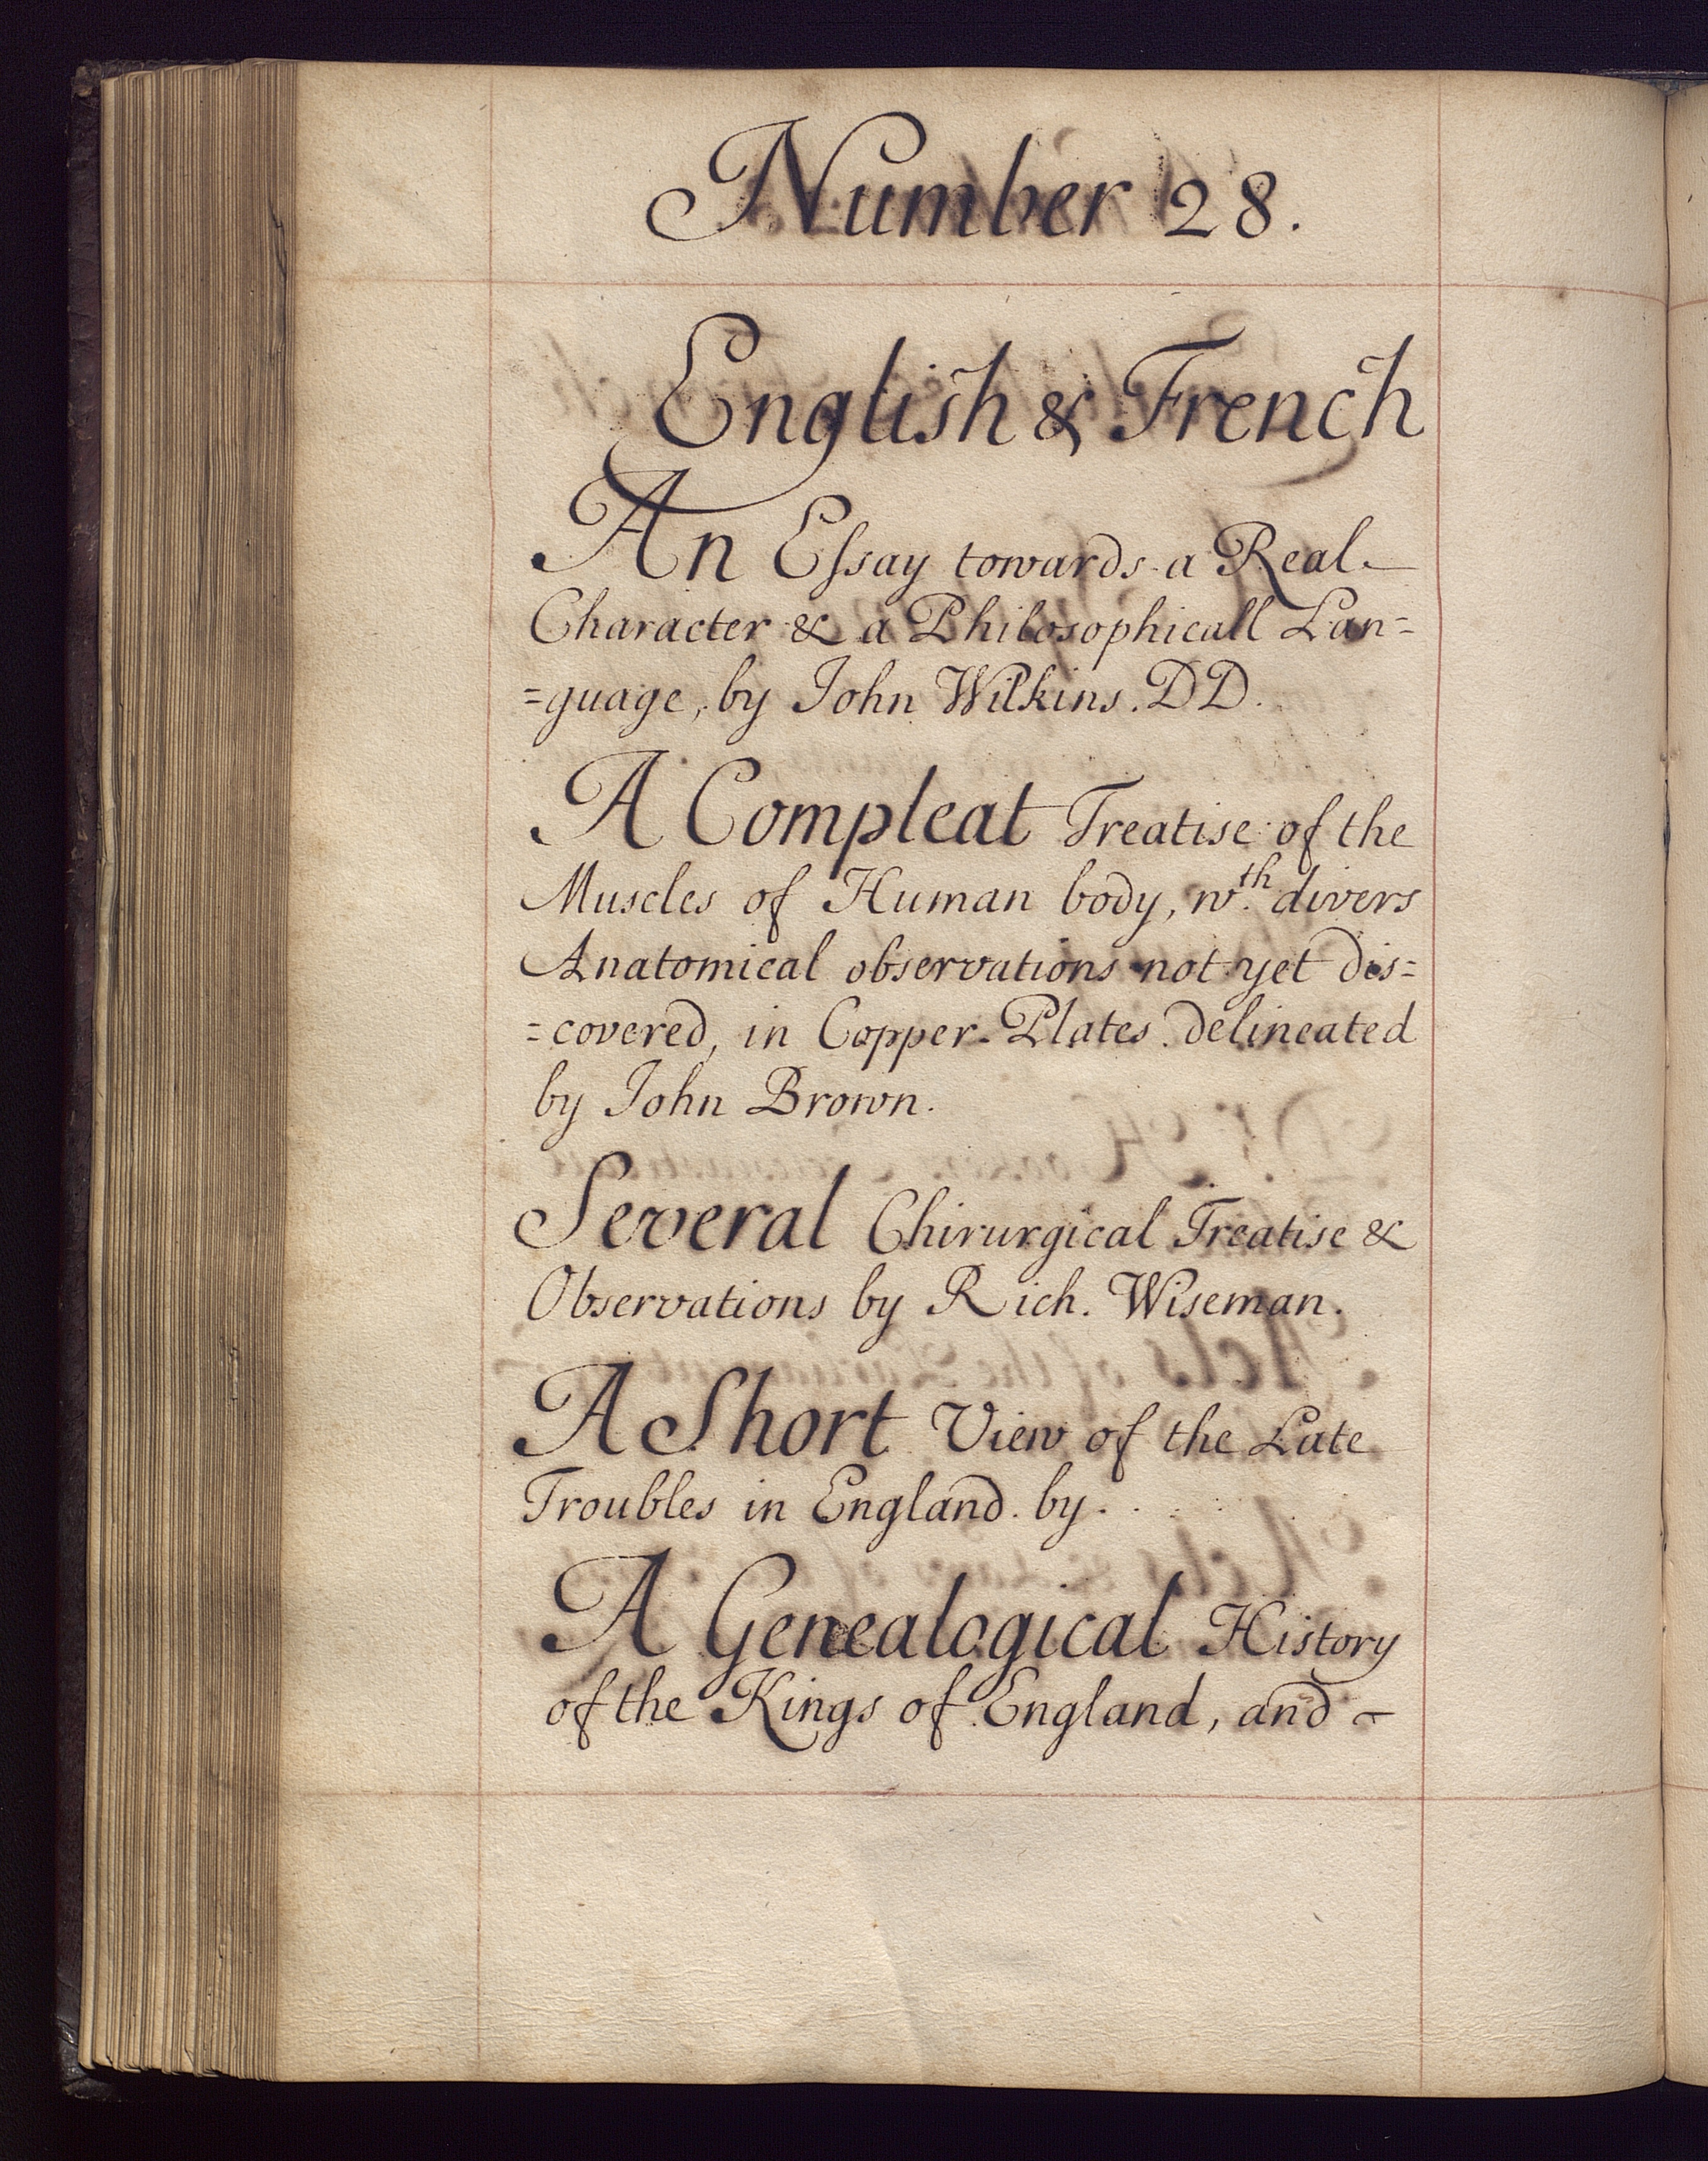 Number 28.
English & French
An Eſsay towards a Real
Character & a Philosophicall Lan=
=guage, by John Wilkins. DD.
A Compleat Treatise of the
Muscles of Human body, wth. divers
Anatomical observations not yet dis=
=covered, in Copper-Plates. delineated
by John Brown.
Several Chirurgical Treatise &
Observations by Rich. Wiseman.
A Short View of the Late
Troubles in England. by. .
A Genealogical History
of the Kings of England, and